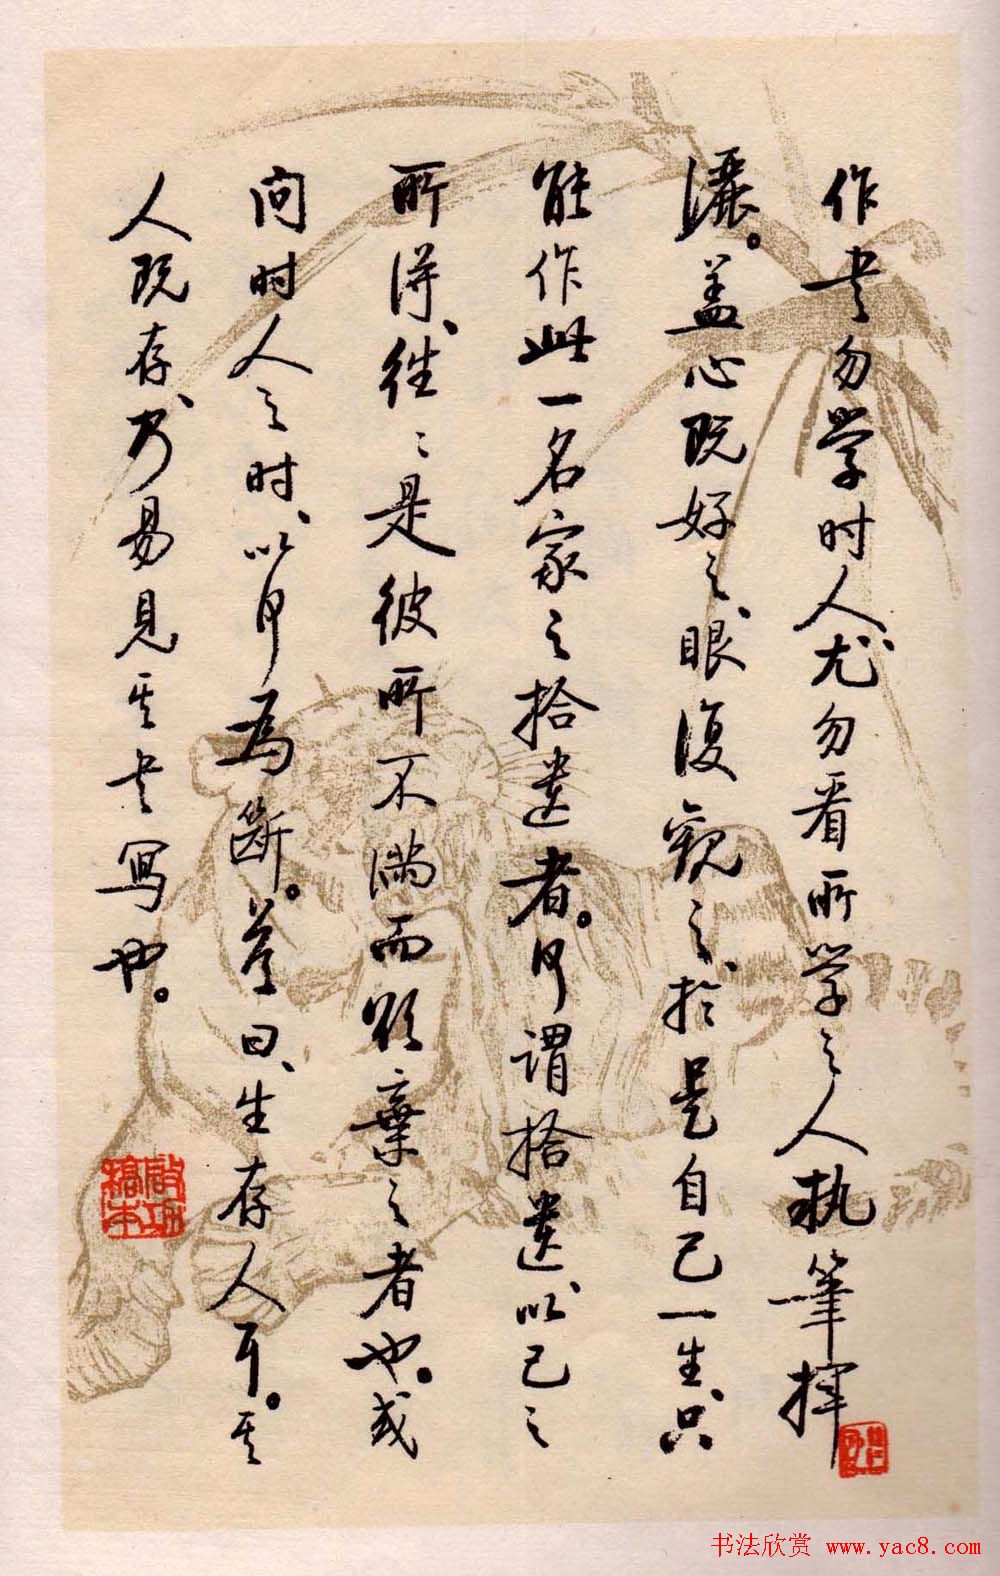 作书勿学时人、尤勿看所学之人执筆揮
灑。盖心既好之、眼復观之、於是自己一生、只
能作此一名家之拾遗者。何谓拾遗、以己之
所得、往往是彼所不满而欲棄之者也。或
问时人之时、以何为断。答曰、生存人耳。其
人既存、乃易見其书写也。
啟功
稿本
书法欣赏 www.yac8.com